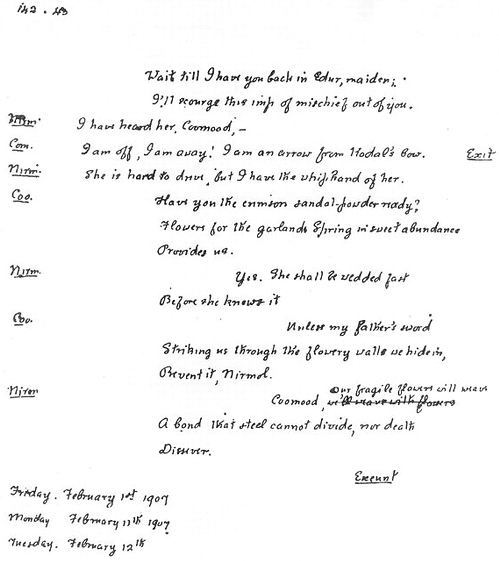 142.43
Wait till I have you back in Edur, maiden;
I'll scourge this imp of mischief out of you.
Nirm. I have heard her, Coomood, —
Com. I am off, I am away! I am an arrow from Kodal's bow. Exit
Nirm. She is hard to drive, but I have the whiphand of her.
Coo. Have you the crimson sandal-powder ready?
Flowers for the garlands Spring in sweet abundance
Provides us.
Nirm. Yes. She shall be wedded fast
Before she knows it
Coo. Unless my father's sword
Striking us through the flowery walls we hide in,
Prevent it, Nirmol.
Our fragile flowers will weave
Nirm Coomood, we'll weave with flowers
A bond that steel cannot divide, nor death
Dissever.
Exeunt
Friday. February 1st 1907
Monday February 11th 1907
Tuesday. February 12th